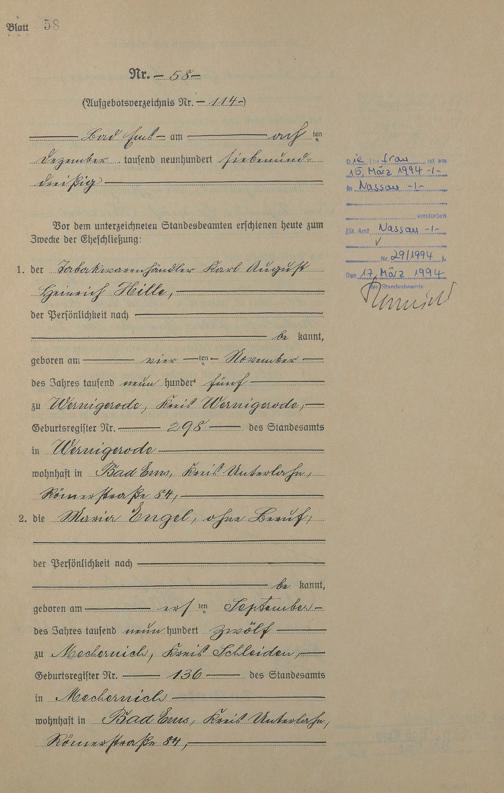 Blatt 58
Nr. — 58 —
(Aufgebotsverzeichnis Nr. — 114 —)
Bad Ems — am acht ten
Dezember tausend neunhundert siebenund-
dreißig
Vor dem unterzeichneten Standesbeamten erschienen heute zum
Zwecke der Eheschließung:
1. der Tabakwarenhändler Karl August
Heinrich Hille,
der Persönlichkeit nach
be kannt,
geboren am vier ten November
des Jahres tausend neun hundert fünf
zu Wernigerode, Kreis Wernigerode,
Geburtsregister Nr. 298 des Standesamts
in Wernigerode
wohnhaft in Bad Ems, Kreis Unterlahn,
Römerstraße 84,
2. die Maria Engel, ohne Beruf,
der Persönlichkeit nach
be kannt,
geboren am ers ten September
des Jahres tausend neun hundert zwölf
zu Mechernich, Kreis Schleiden,
Geburtsregister Nr. 136 des Standesamts
in Mechernich
wohnhaft in Bad Ems, Kreis Unterlahn,
Römerstraße 84,
Die Ehefrau ist am
15. März 1994 -/-
in Nassau -/-
verstorben
Nassau -/-
Nr. 29/1994
Den 17. März 1994
Der Standesbeamte